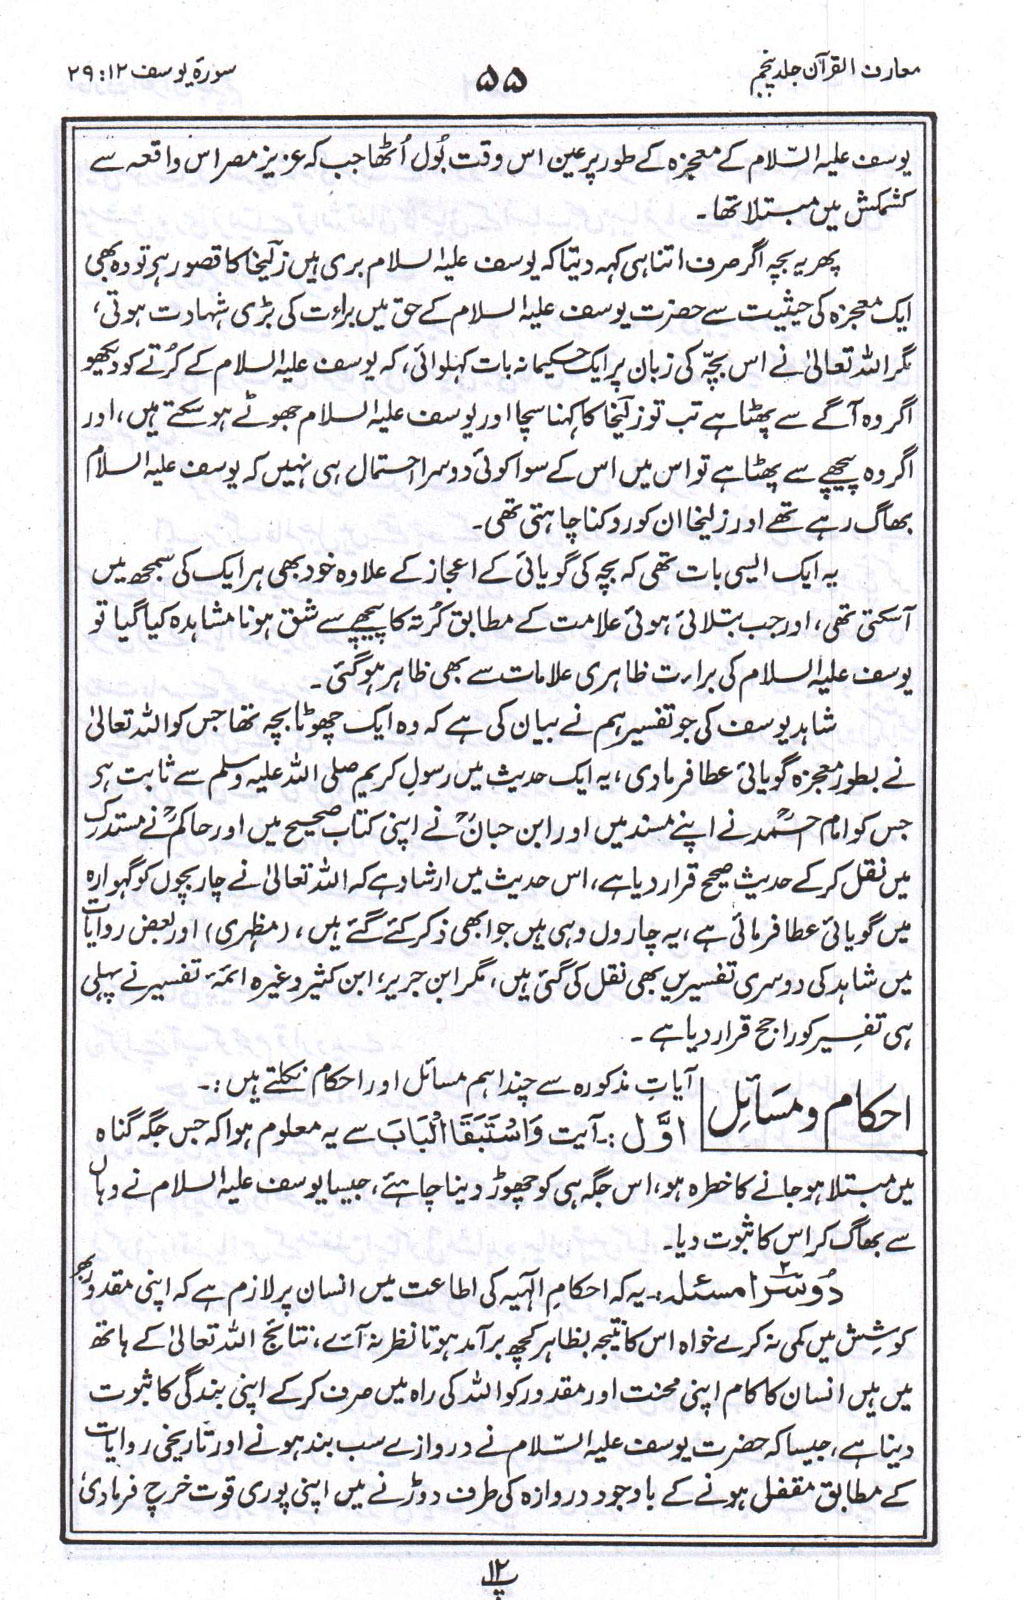 معارف القرآن جلد پنجم
۵۵
سورۃ یوسف ۱۲ : ۲۹
یوسف علیہ السّلام کے معجزہ کے طور پر عین اس وقت بُول اُٹھا جب کہ عزیز مصر اس واقعہ سے
کشمکش میں مبتلا تھا۔
پھر یہ بچہ اگر صرف اتنا ہی کہہ دیتا کہ یوسف علیہ السلام بری ہیں زلیخا کا قصور ہر تو وہ بھی
ایک معجزہ کی حیثیت سے حضرت یوسف علیہ السلام کے حق میں براءت کی بڑی شہادت ہوتی،
مگر اللہ تعالیٰ نے اس بچّہ کی زبان پر ایک حکیمانہ بات کہلوائی، کہ یوسف علیہ السلام کے کرُتے کو دیکھو
اگر وہ آگے سے پھٹا ہے تب تو زلیخا کا کہنا سچا اور یوسف علیہ السلام جھوٹے ہو سکتے ہیں، اور
اگر وہ پیچھے سے پھٹا ہے تو اس میں اس کے سوا کوئی دوسرا احتمال ہی نہیں کہ یوسف علیہ السلام
بھاگ رہے تھے اور زلیخا ان کو روکنا چاہتی تھی۔
یہ ایک ایسی بات تھی کہ بچہ کی گویائی کے اعجاز کے علاوہ خود بھی ہر ایک کی سمجھ میں
آسکتی تھی، اور جب بتلائی ہوئی علامت کے مطابق کرُتہ کا پیچھے سے شق ہونا مشاہدہ کیا گیا تو
یوسف علیہ السلام کی براءت ظاہری علامات سے بھی ظاہر ہو گئی۔
شاہد یوسف کی جو تفسیر ہم نے بیان کی ہے کہ وہ ایک چھوٹا بچہ تھا جس کو اللہ تعالیٰ
نے بطور معجزہ گویائی عطا فرما دی، یہ ایک حدیث میں رسول کریم صلی اللہ علیہ وسلم سے ثابت ہر
جس کو امام احمدؒ نے اپنے مسند میں اور ابن حبانؒ نے اپنی کتاب صحیح میں اور حاکمؒ نے مستدرک
میں نقل کر کے حدیث صحیح قرار دیا ہے، اس حدیث میں ارشاد ہے کہ اللہ تعالیٰ نے چار بچوں کو گہوارہ
میں گویائی عطا فرمائی ہے، یہ چاروں وہی ہیں جو ابھی ذکر کئے گئے ہیں، (مظہری) اور بعض روایات
میں شاہد کی دوسری تفسیریں بھی نقل کی گئی ہیں، مگر ابن جریر، ابن کثیر وغیرہ ائمہ تفسیر نے پہلی
ہی تفسیر کو راجح قرار دیا ہے۔
احکام و مسَائِل
آیاتِ مذکورہ سے چند اہم مسائل اور احکام نکلتے ہیں:۔
اوّل:۔ آیت وَاسْتَبَقَا الْبَابَ سے یہ معلوم ہوا کہ جس جگہ گناہ
میں مبتلا ہو جانے کا خطرہ ہو، اس جگہ ہی کو چھوڑ دینا چاہئے، جیسا یوسف علیہ السلام نے وہاں
سے بھاگ کر اس کا ثبوت دیا۔
دُوسْرا مسئلہ:۔ یہ کہ احکامِ الٰہیہ کی اطاعت میں انسان پر لازم ہے کہ اپنی مقدور بھر
کوشِش میں کمی نہ کرے خواہ اس کا نتیجہ بظاہر کچھ برآمد ہوتا نظر نہ آئے، نتائج اللہ تعالیٰ کے ہاتھ
میں ہیں انسان کا کام اپنی محنت اور مقدور کو اللہ کی راہ میں صرف کر کے اپنی بندگی کا ثبوت
دینا ہے، جیسا کہ حضرت یوسف علیہ السّلام نے دروازے سب بند ہونے اور تاریخی روایات
کے مطابق مقفل ہونے کے باوجود دروازہ کی طرف دوڑنے میں اپنی پوری قوت خرچ فرما دی
پ ۱۲